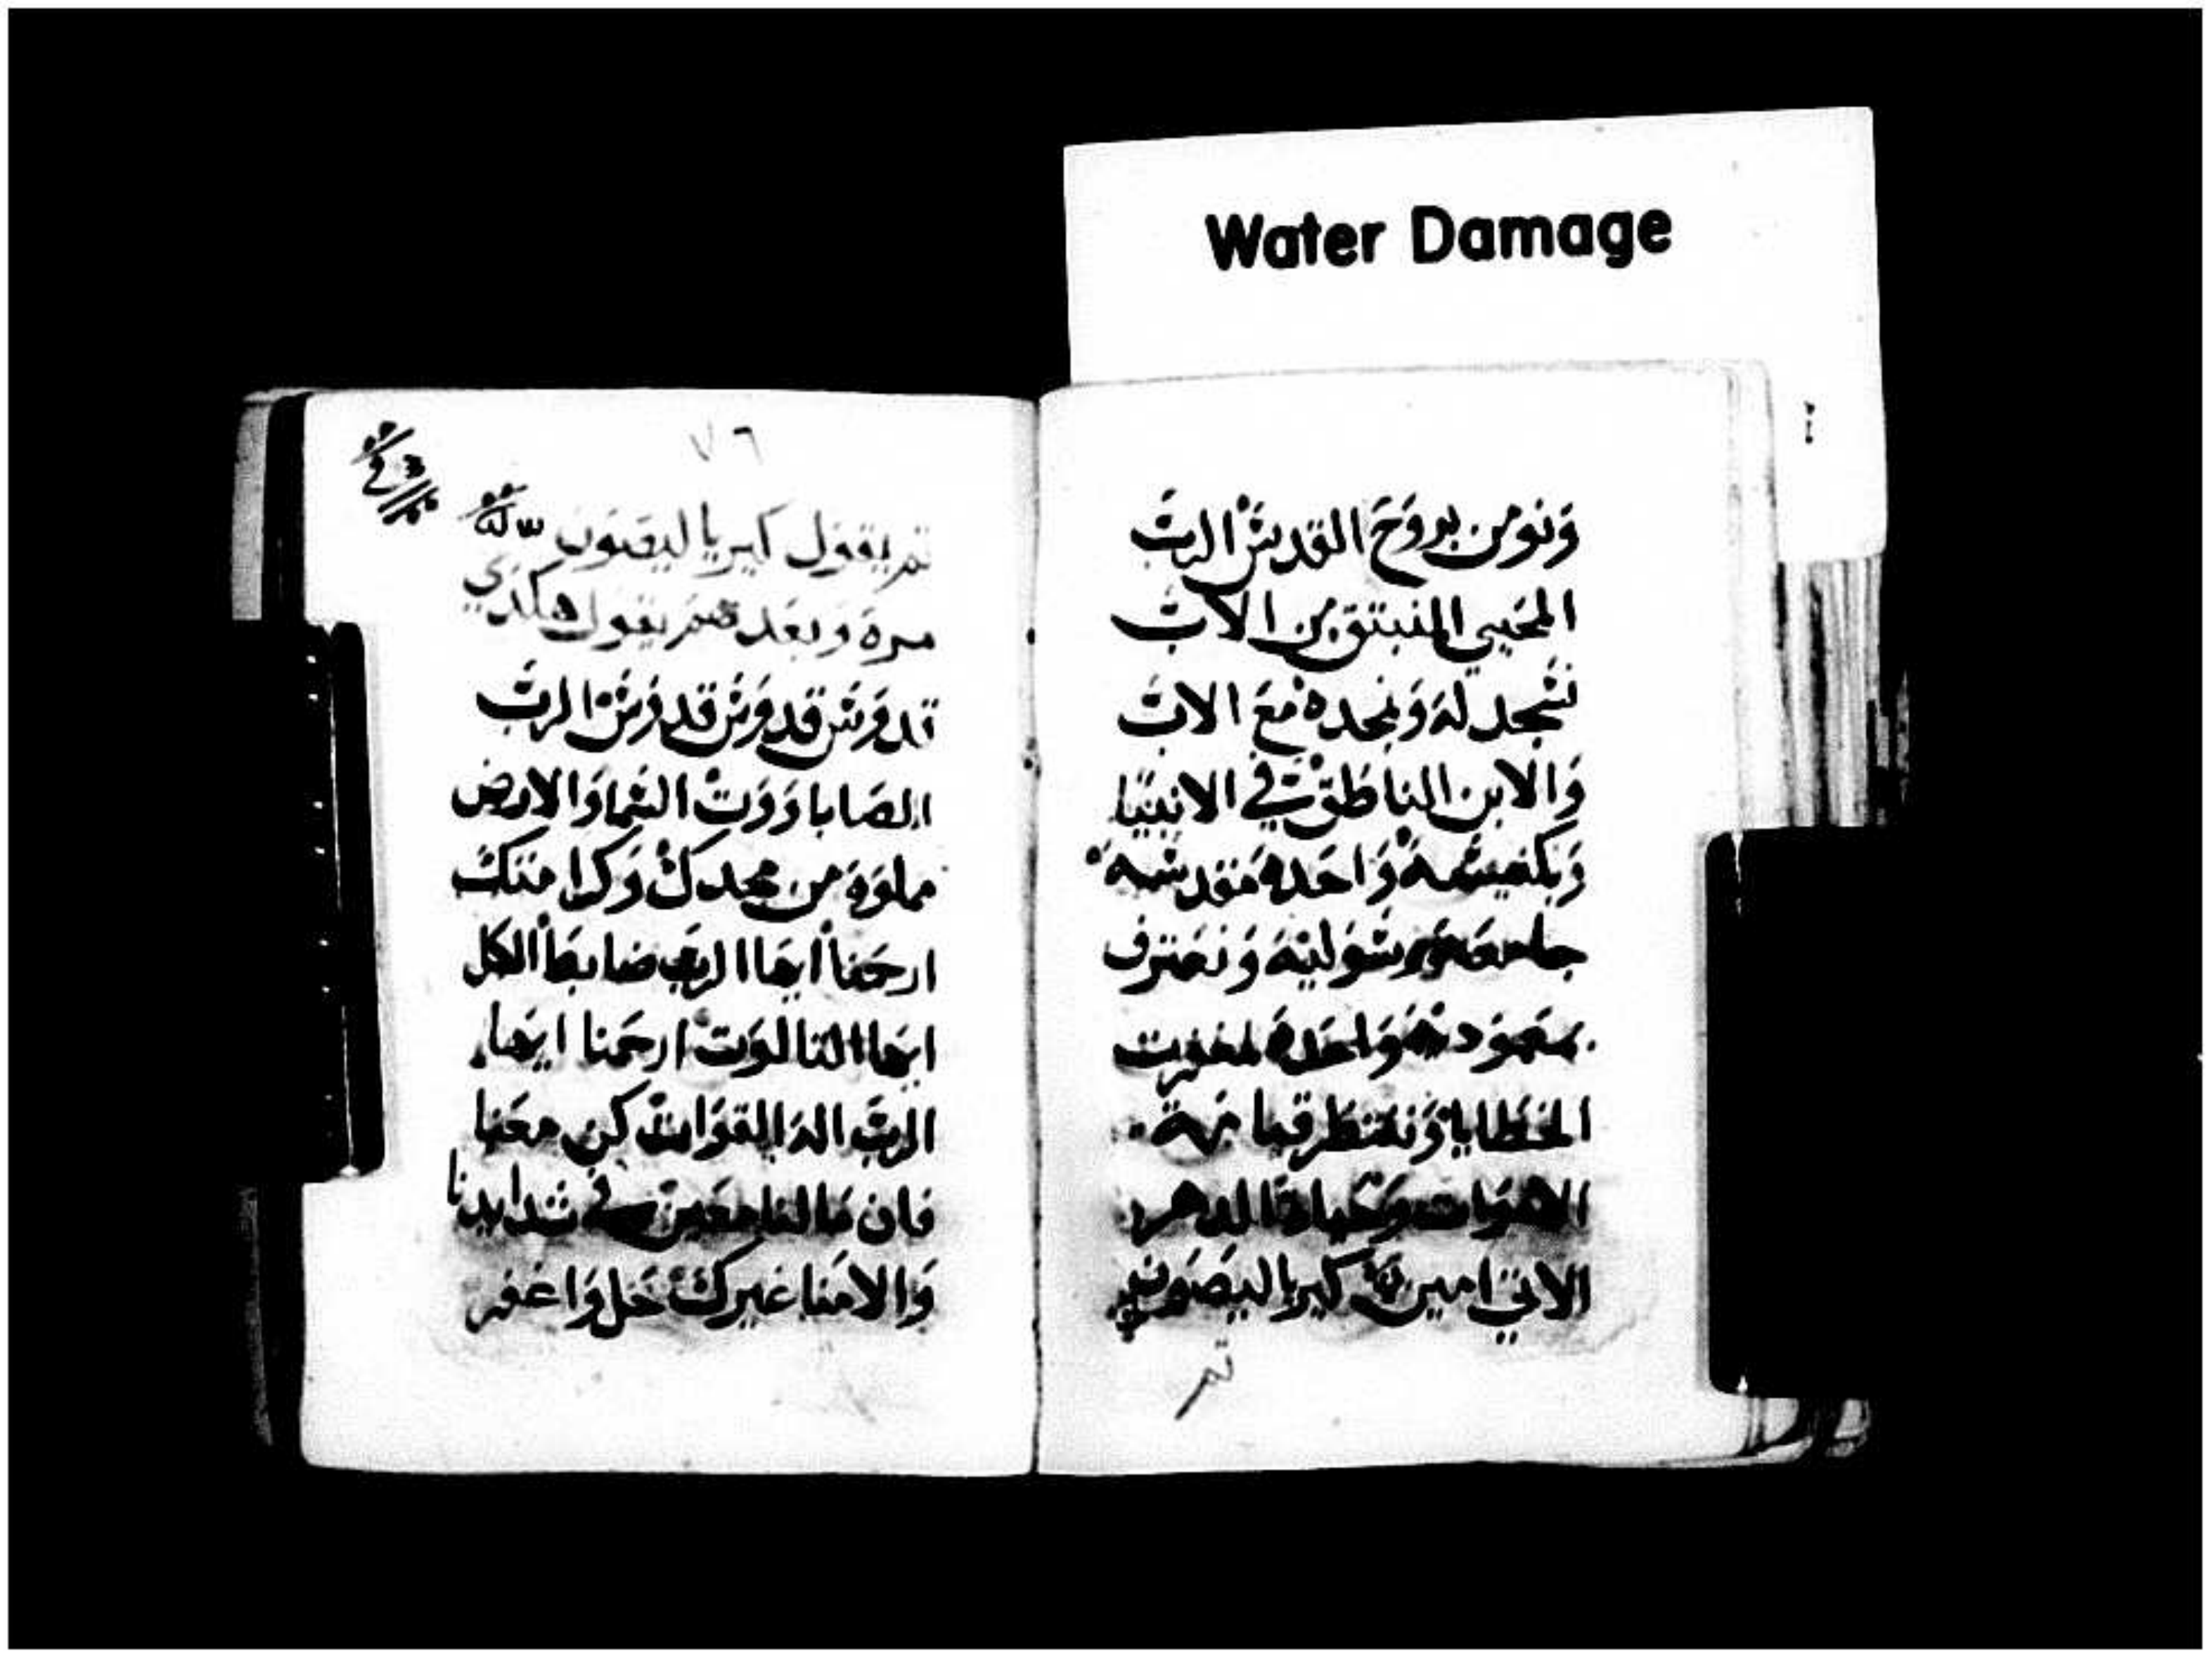 Water Damage
وَنومن بروَح القديسَ الربَ
المحَيي المنبتق من الابَ
نسَجد لهَ وَنمجدهْ معَ الابَ
وَالابن الناطَق في الانبيَا
وَبكنيسَهْ وَاحَدهَ مَقدسَه
جامعَه رسَوَليهَ وَنعَترف
بمعَموَديهَ وَاحَدهَ لمغفرت
الخطَايا وَننتظَر قيامَة
الاموَات وَحَياةَ الدهر
الاتي امين كيريا ليصَوَن
تم
٧٦
تم يقوَل كيريا ليصَوَن
مرة وَبعَد يقوَل هكذي
قدوَسَ قدوَسَ قدوَسَ الربَ
الصَاباوَوَتْ السَما وَالارض
مملوَة من مجدكْ وَكرامَتكَ
ارحَمنا ايهَا الربَ ضابطَ الكل
ايهَا التالوَت ارحَمنا ايهَا
الربَ الهَ القوَات كن معَنا
فان مَا لنا معَين في شدايدنا
وَالامَنا غيركْ حَل وَاغفر